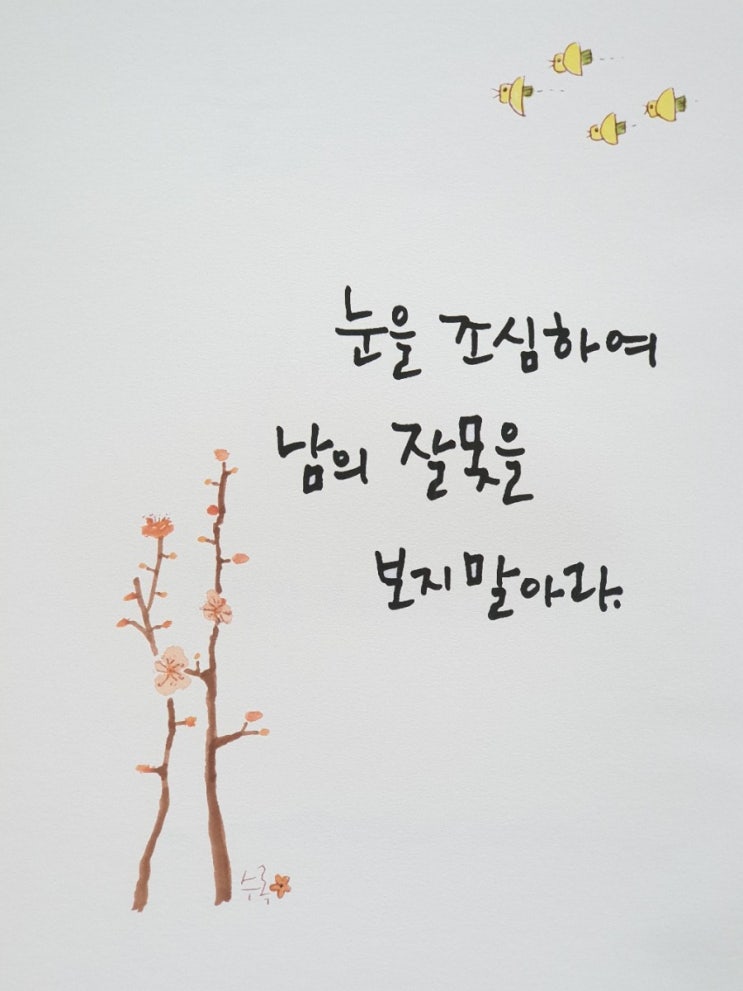 눈을 조심하여
남의 잘못을
보지말아라.
수록